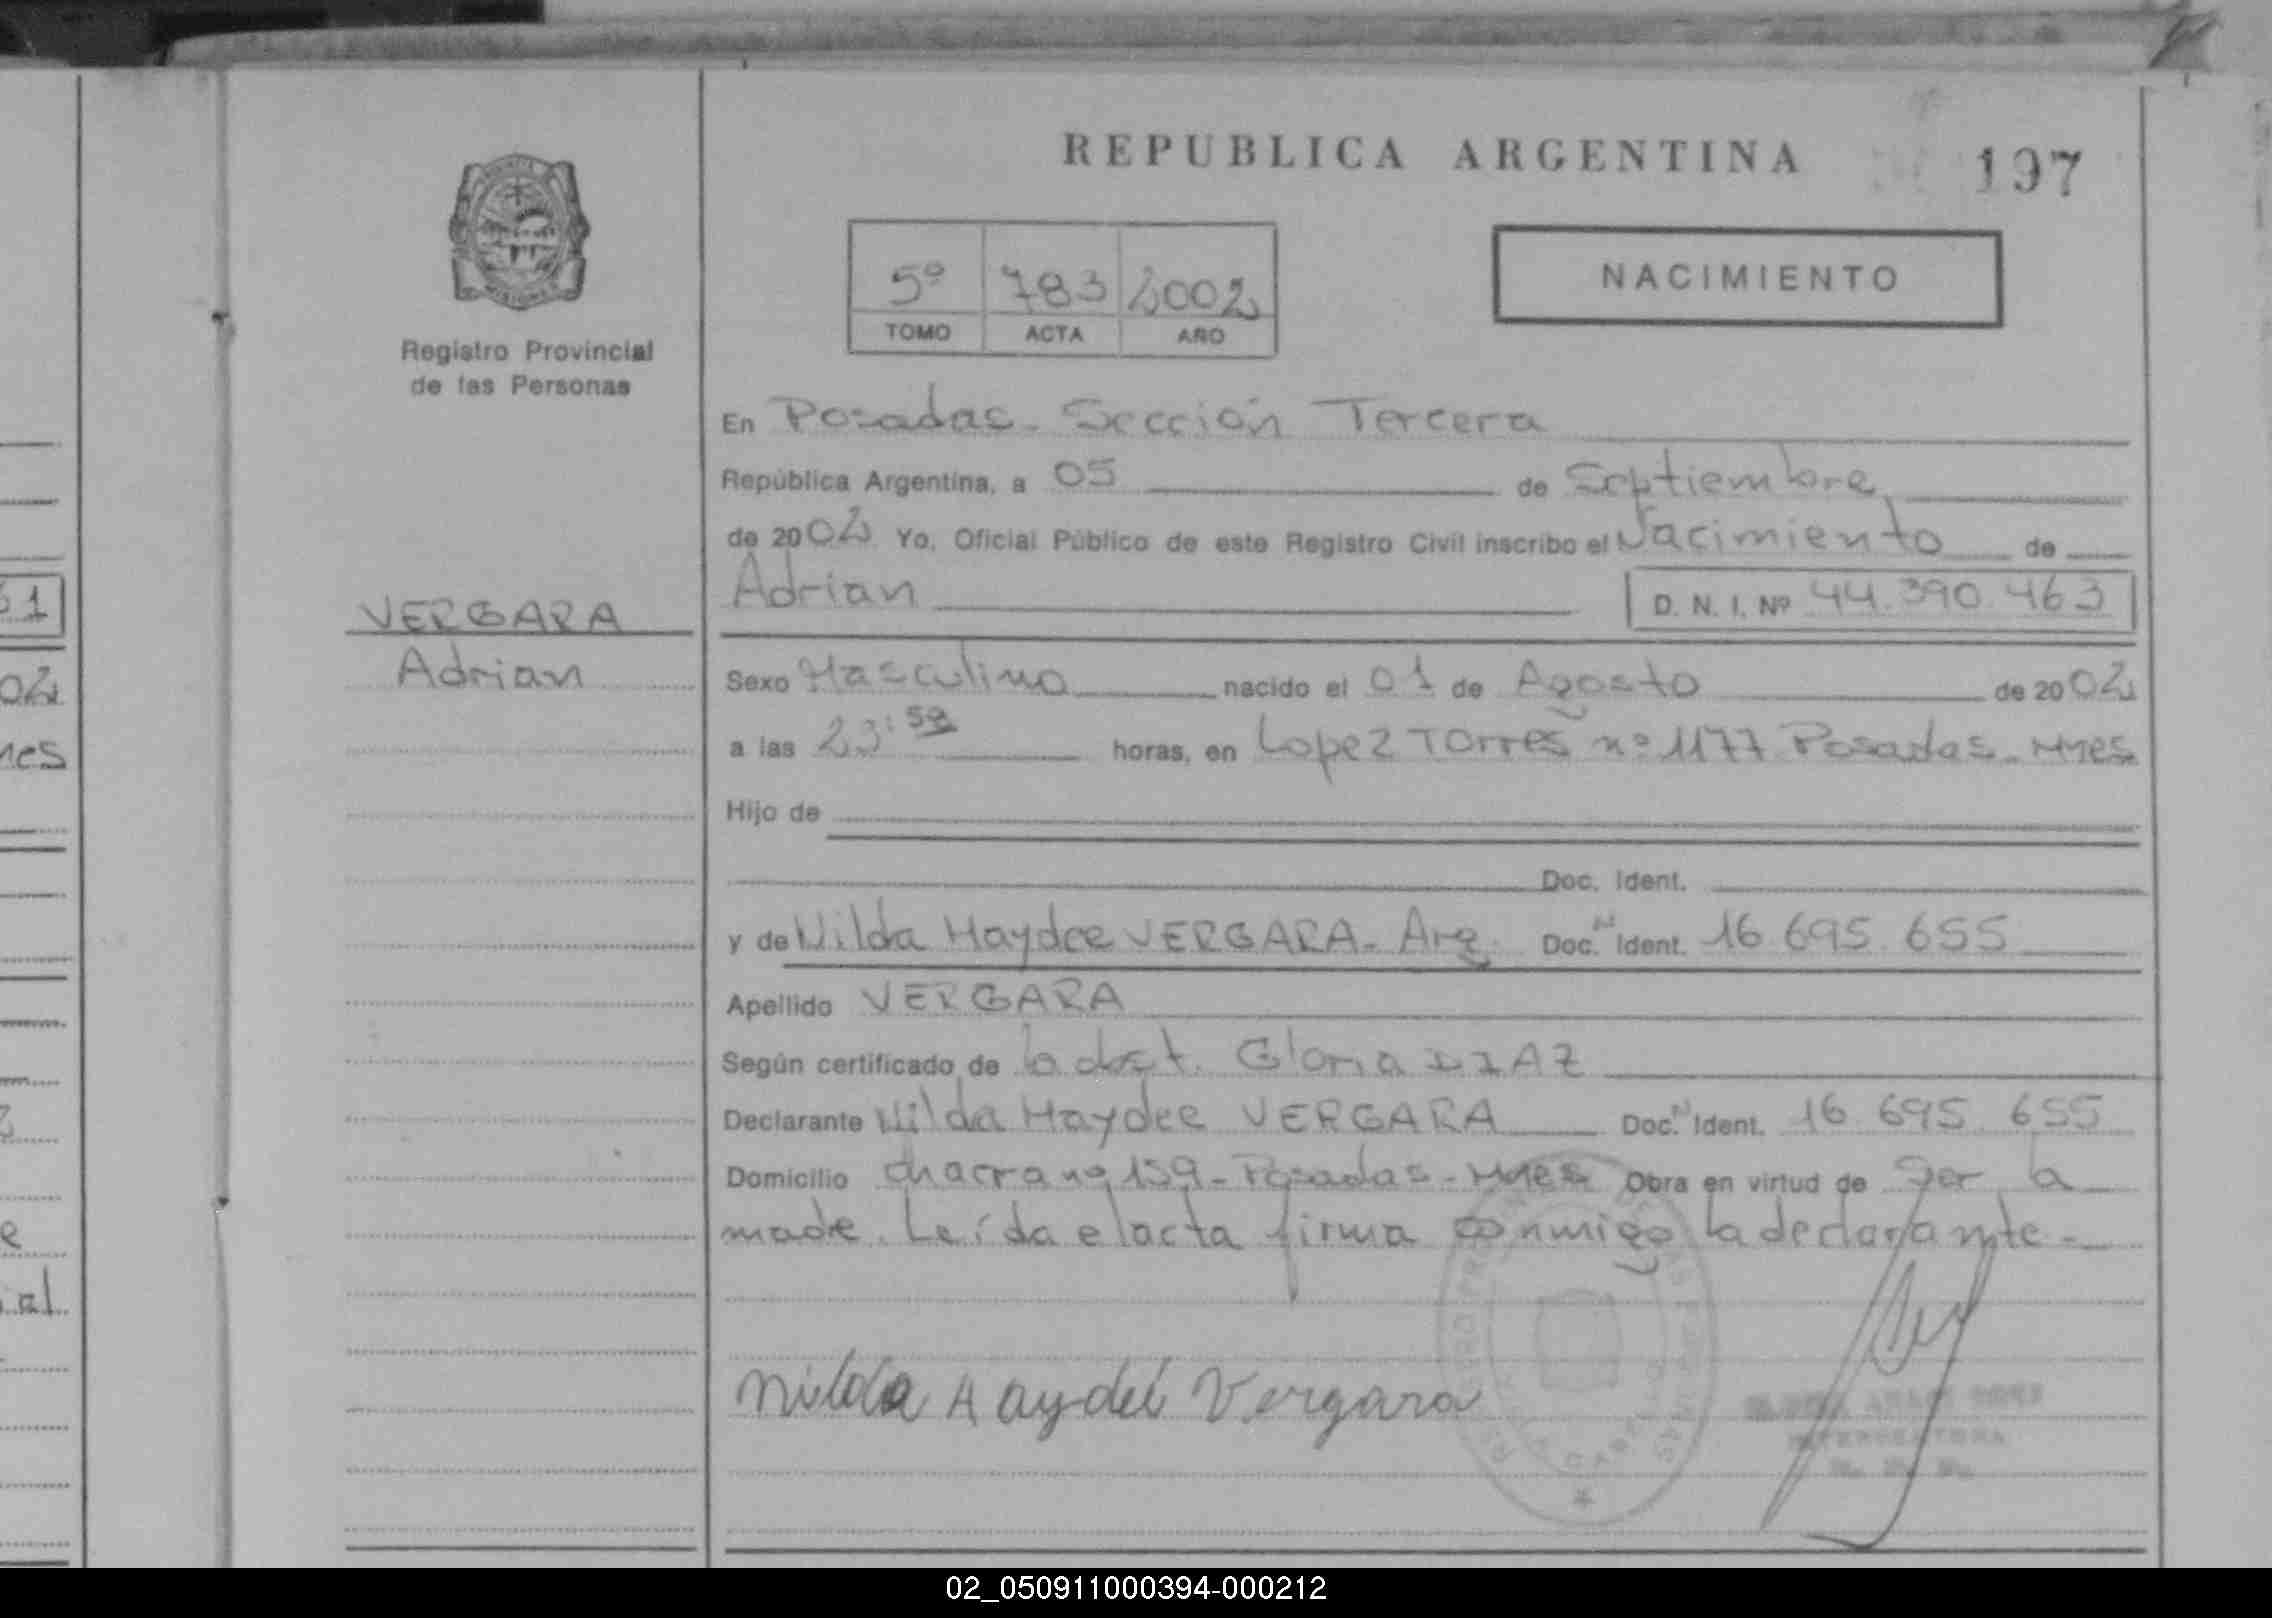 REPUBLICA ARGENTINA
197
5º 783 2002
TOMO ACTA AÑO
NACIMIENTO
Registro Provincial
de las Personas
En Posadas - Sección Tercera
República Argentina, a 05 de Septiembre
de 2002 Yo, Oficial Público de este Registro Civil inscribo el Nacimiento de
Adrian D. N. I. Nº 44.390.463
VERGARA
Adrian
Sexo Masculino nacido el 01 de Agosto de 2002
a las 23:59 horas, en Lopez Torres nº 1177 Posadas - Mnes
Hijo de
Doc. Ident.
y de Nilda Haydee VERGARA - Arg. Doc. N Ident. 16 695. 655
Apellido VERGARA
Según certificado de la obst. Gloria DIAZ
Declarante Nilda Haydee VERGARA Doc. N Ident. 16 695. 655
Domicilio chacra nº 159 - Posadas - Mnes Obra en virtud de ser la
madre. Leída el acta firma conmigo la declarante -
Nilda Haydeé Vergara
61
02
nes
e
al
02_050911000394-000212